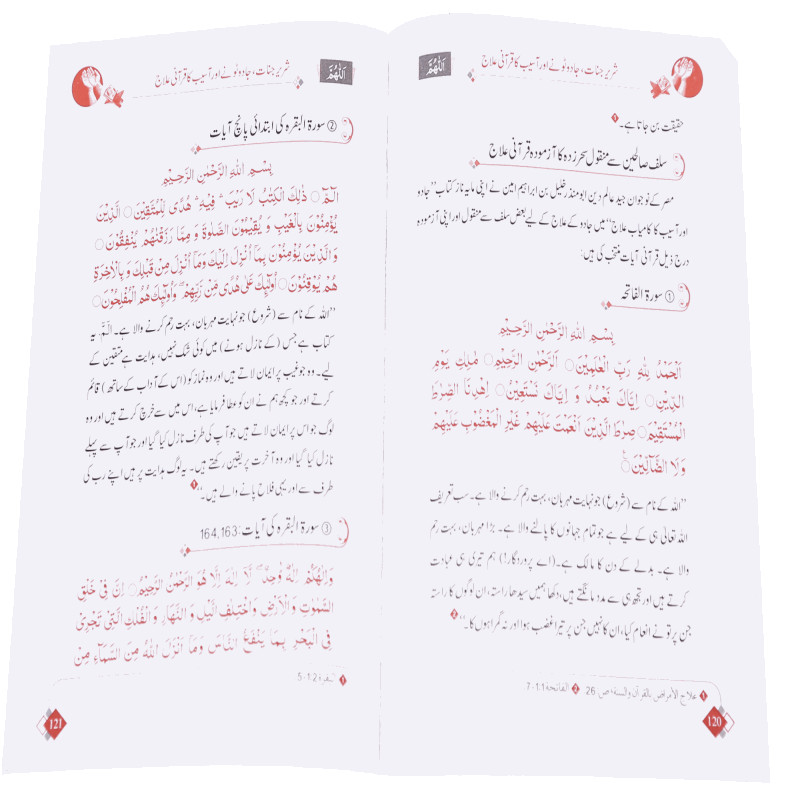 شریر جنات، جادو ٹونے اور آسیب کا قرآنی علاج
اَللّٰهُمَّ
حقیقت بن جاتا ہے۔ ❶
سلف صالحین سے منقول سحر زدہ کا آزمودہ قرآنی علاج
مصر کے نوجوان جید عالم دین ابومنذر خلیل بن ابراہیم امین نے اپنی مایہ ناز کتاب ”جادو
اور آسیب کا کامیاب علاج“ میں جادو کے علاج کے لیے بعض سلف سے منقول اور اپنی آزمودہ
درج ذیل قرآنی آیات منتخب کی ہیں:
① سورۃ الفاتحہ
بِسْمِ اللّٰهِ الرَّحْمٰنِ الرَّحِيْمِ
اَلْحَمْدُ لِلّٰهِ رَبِّ الْعٰلَمِيْنَ○ الرَّحْمٰنِ الرَّحِيْمِ○ مٰلِكِ يَوْمِ
الدِّيْنِ○ اِيَّاكَ نَعْبُدُ وَ اِيَّاكَ نَسْتَعِيْنُ○ اِهْدِنَا الصِّرَاطَ
الْمُسْتَقِيْمَ○ صِرَاطَ الَّذِيْنَ اَنْعَمْتَ عَلَيْهِمْ غَيْرِ الْمَغْضُوْبِ عَلَيْهِمْ
وَلَا الضَّآلِّيْنَ○
”اللہ کے نام سے (شروع) جو نہایت مہربان، بہت رحم کرنے والا ہے۔ سب تعریف
اللہ تعالیٰ ہی کے لیے ہے جو تمام جہانوں کا پالنے والا ہے۔ بڑا مہربان، بہت رحم
والا ہے۔ بدلے کے دن کا مالک ہے۔ (اے پروردگار!) ہم تیری ہی عبادت
کرتے ہیں اور تجھ ہی سے مدد مانگتے ہیں، دکھا ہمیں سیدھا راستہ، ان لوگوں کا راستہ
جن پر تو نے انعام کیا، ان کا نہیں جن پر تیرا غضب ہوا اور نہ گمراہوں کا۔“ ❷
❶ علاج الأمراض بالقرآن والسنة، ص: 26 ❷ الفاتحة 1:1-7
120
شریر جنات، جادو ٹونے اور آسیب کا قرآنی علاج
اَللّٰهُمَّ
② سورۃ البقرہ کی ابتدائی پانچ آیات
بِسْمِ اللّٰهِ الرَّحْمٰنِ الرَّحِيْمِ
الٓمّٓ○ ذٰلِكَ الْكِتٰبُ لَا رَيْبَ ۛ فِيْهِ ۛ هُدًى لِّلْمُتَّقِيْنَ○ الَّذِيْنَ
يُؤْمِنُوْنَ بِالْغَيْبِ وَ يُقِيْمُوْنَ الصَّلٰوةَ وَ مِمَّا رَزَقْنٰهُمْ يُنْفِقُوْنَ○
وَ الَّذِيْنَ يُؤْمِنُوْنَ بِمَآ اُنْزِلَ اِلَيْكَ وَمَآ اُنْزِلَ مِنْ قَبْلِكَ وَ بِالْاٰخِرَةِ
هُمْ يُوْقِنُوْنَ○ اُولٰٓئِكَ عَلٰى هُدًى مِّنْ رَّبِّهِمْ ۗ وَاُولٰٓئِكَ هُمُ الْمُفْلِحُوْنَ○
”اللہ کے نام سے (شروع) جو نہایت مہربان، بہت رحم کرنے والا ہے۔ الٓمّٓ، یہ
کتاب ہے جس (کے نازل ہونے) میں کوئی شک نہیں، ہدایت ہے متقین کے
لیے۔ وہ جو غیب پر ایمان لاتے ہیں اور وہ نماز کو (اس کے آداب کے ساتھ) قائم
کرتے اور جو کچھ ہم نے ان کو عطا فرمایا ہے، اس میں سے خرچ کرتے ہیں اور وہ
لوگ جو اس پر ایمان لاتے ہیں جو آپ کی طرف نازل کیا گیا اور جو آپ سے پہلے
نازل کیا گیا اور وہ آخرت پر یقین رکھتے ہیں۔ یہ لوگ ہدایت پر ہیں اپنے رب کی
طرف سے اور یہی فلاح پانے والے ہیں۔“ ❶
③ سورۃ البقرہ کی آیات: 164,163
وَاِلٰهُكُمْ اِلٰهٌ وَّاحِدٌ ۚ لَآ اِلٰهَ اِلَّا هُوَ الرَّحْمٰنُ الرَّحِيْمُ○ اِنَّ فِيْ خَلْقِ
السَّمٰوٰتِ وَ الْاَرْضِ وَ اخْتِلَافِ الَّيْلِ وَ النَّهَارِ وَ الْفُلْكِ الَّتِيْ تَجْرِيْ
فِي الْبَحْرِ بِمَا يَنْفَعُ النَّاسَ وَ مَآ اَنْزَلَ اللّٰهُ مِنَ السَّمَآءِ مِنْ
❶ البقرة 1:2-5
121